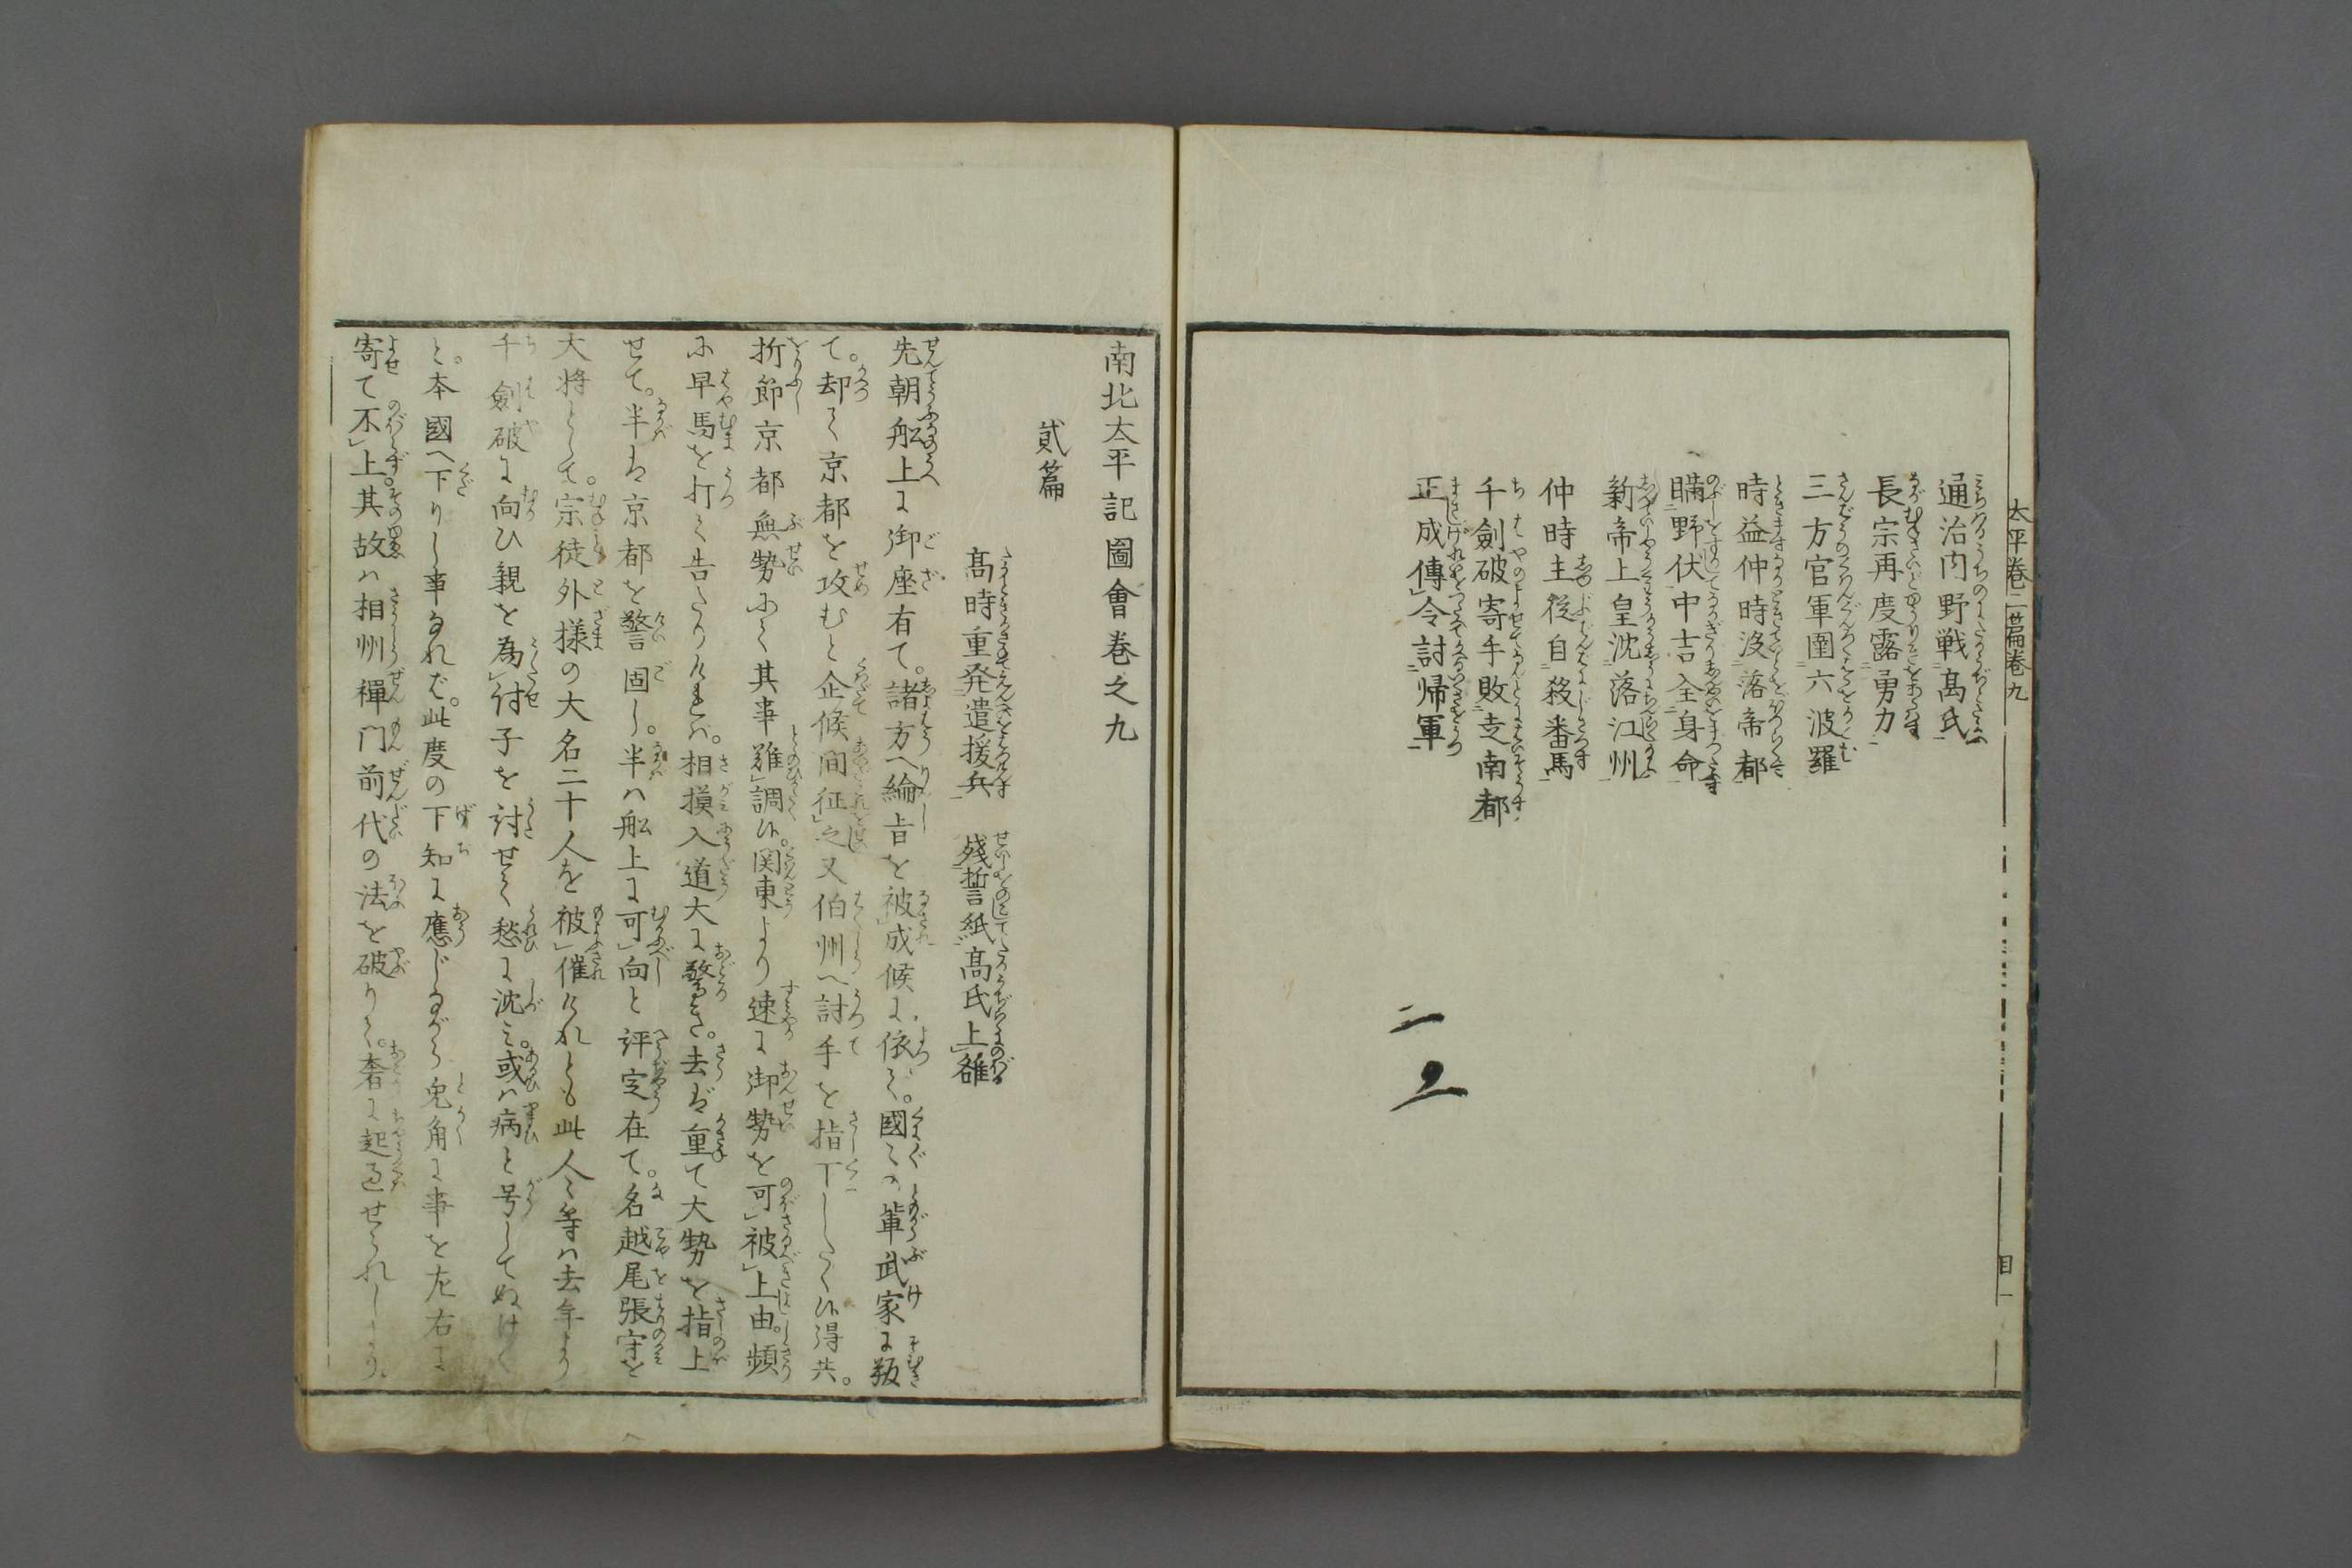 太平巻二篇巻九
目一
通治内野戦髙氏
長宗再度露勇力
三方官軍圍六波羅
時益仲時没落帝都
瞞野伏中吉全身命
新帝上皇沈落江州
仲時主従自殺番馬
千劔破寄手敗走南都
正成傳令討帰軍
南北太平記圖會巻之九
貳篇
髙時重発遣援兵　残誓紙髙氏上雒
先朝舩上に御座有て。諸方へ綸旨を被成候に依て。國〻の輩武家に叛
て。却て京都を攻むと企候間征之又伯州へ討手を指下したく候得共。
折節京都無勢にて其事難調候。関東より速に御勢を可被上由。頻
に早馬を打て告たりけれバ。相摸入道大に驚き。去ば重て大勢を指上
せて。半は京都を警固し。半ハ舩上に可向と評定在て。名越尾張守を
大将として。宗徒外様の大名二十人を被催けれとも此人〻等ハ去年より
千劔破に向ひ親を為討子を討せて愁に沈ミ。或ハ病と号してぬけ〳〵
と。本國へ下りし事なれバ。此度の下知に應じながら兎角に事を左右に
寄て不上。其故ハ相州禪門前代の法を破りて。奢に起過せられしより。